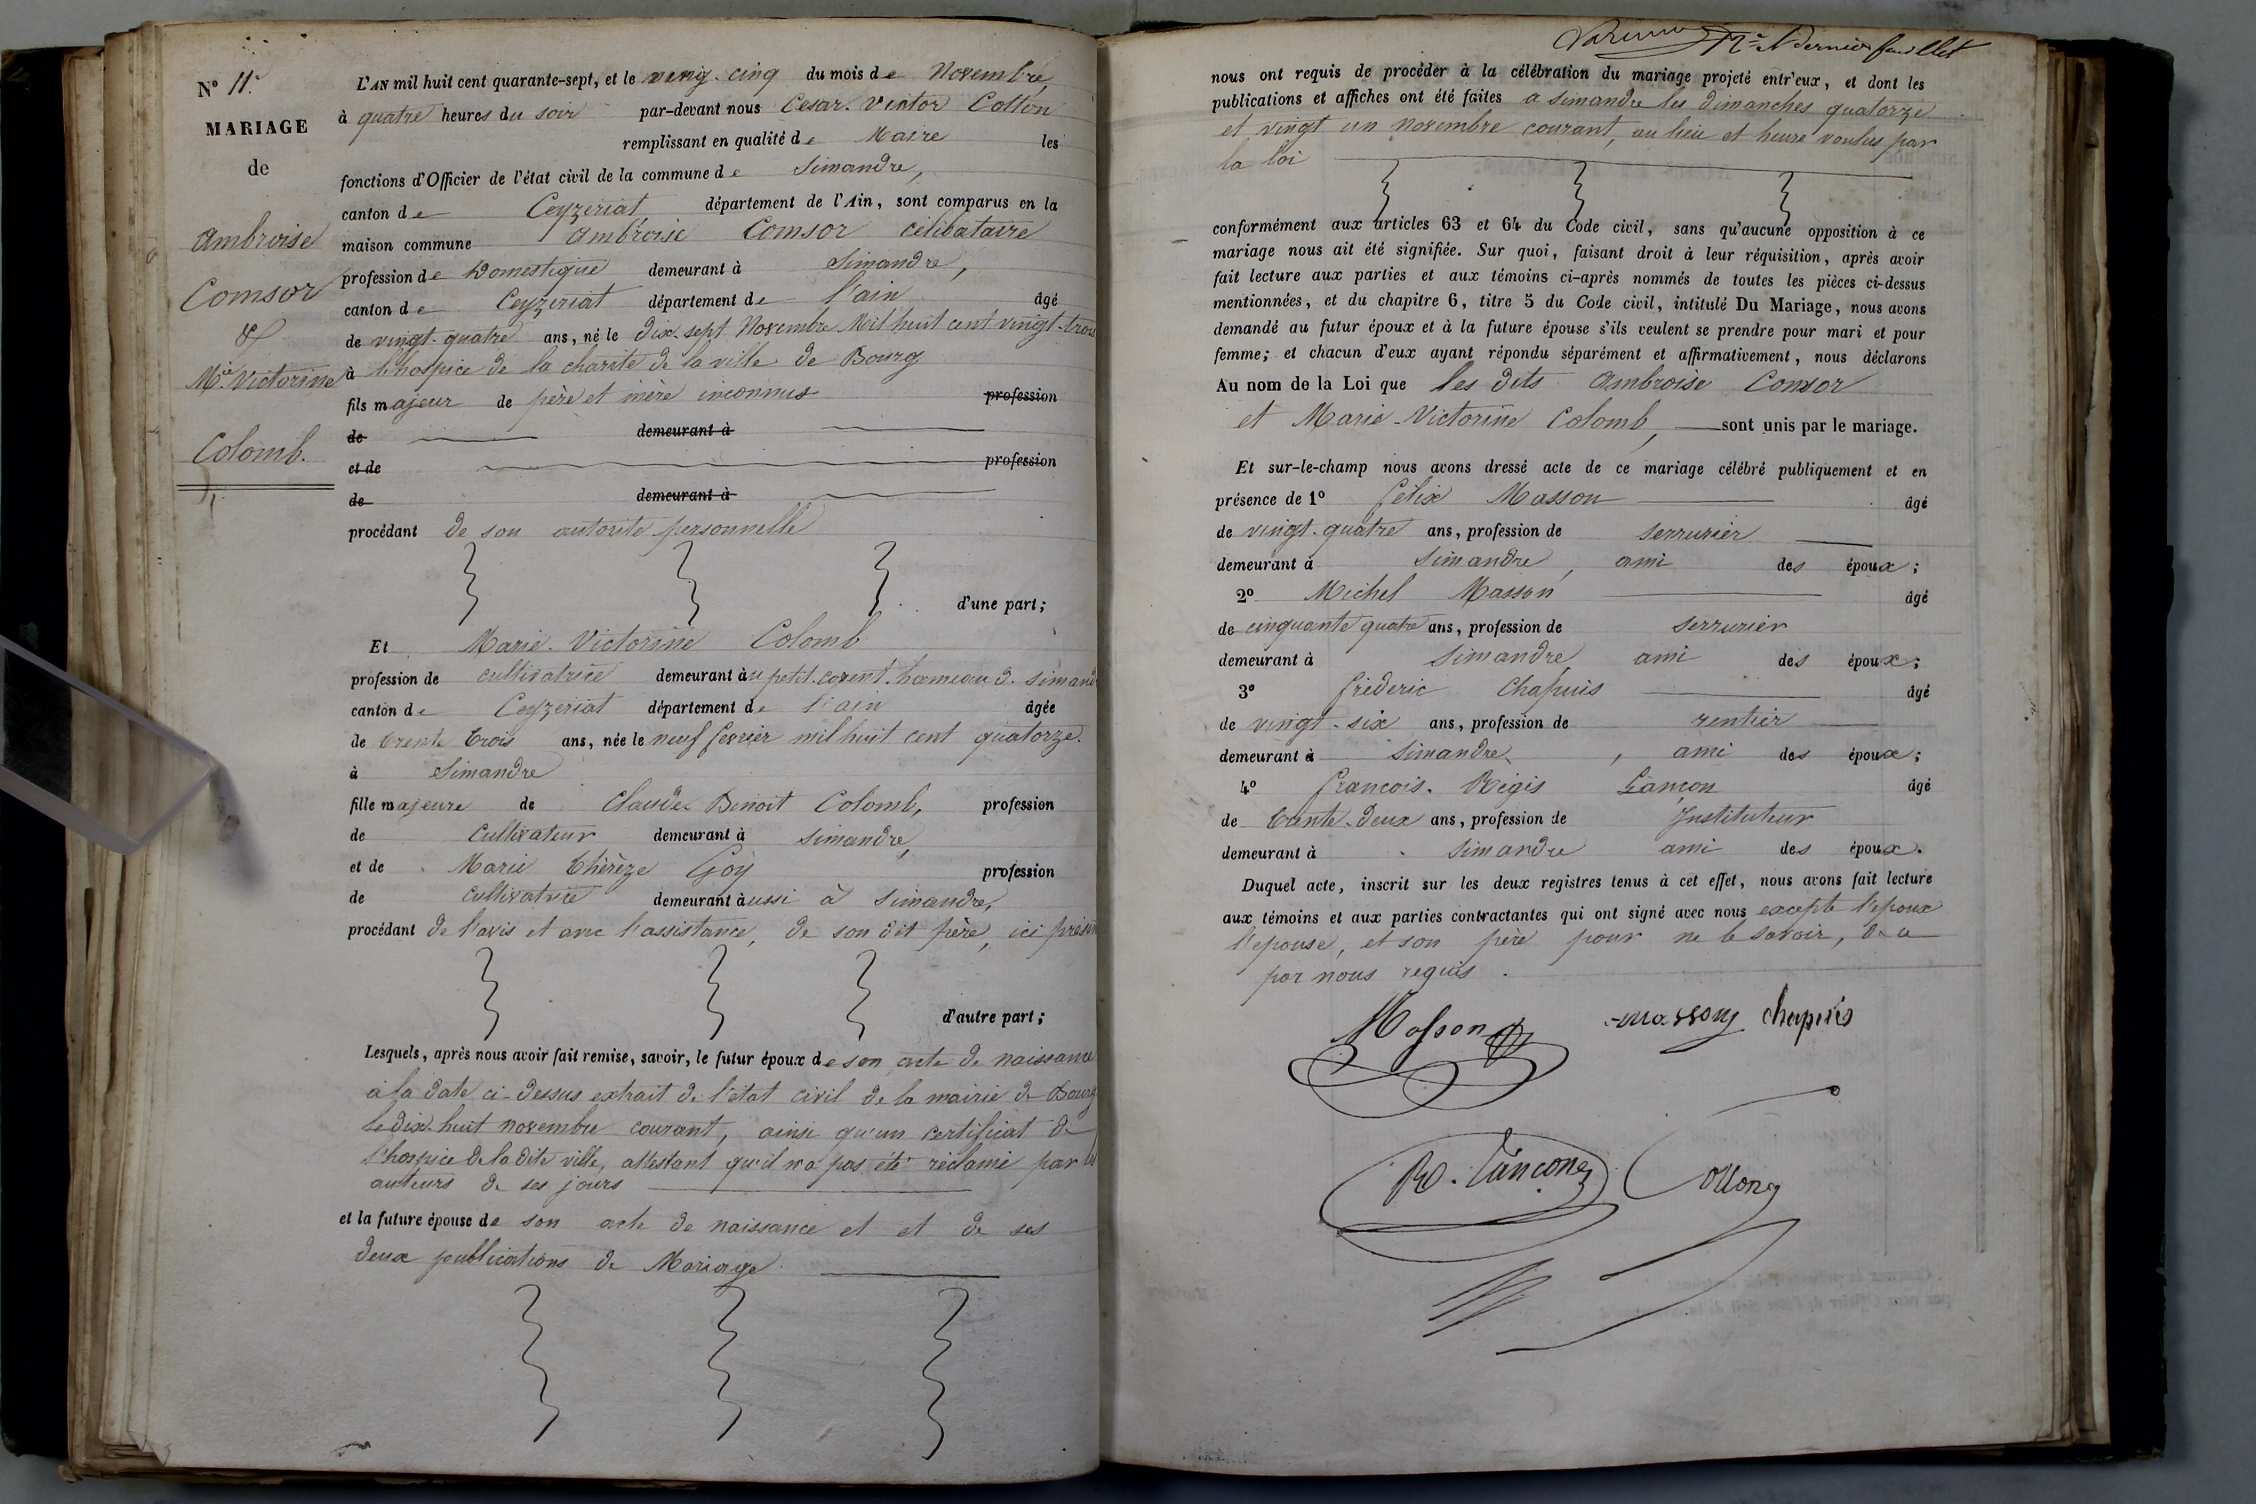 N° 11.
MARIAGE
de
Ambroise
Comsor
&
Mie Victorine
Colomb.
L'AN mil huit cent quarante-sept, et le vingt-cinq du mois de Novembre
à quatre heures du soir par-devant nous Cesar-Victor Cotton
remplissant en qualité de Maire les
fonctions d'Officier de l'état civil de la commune de Simandre,
canton de Ceyzeriat département de l'Ain, sont comparus en la
maison commune Ambroise Comsor célibataire
profession de Domestique demeurant à Simandre,
canton de Ceyzeriat département de l'ain âgé
de vingt-quatre ans, né le dix-sept Novembre Mil huit cent vingt-trois
à l'hospice de la charité de la ville de Bourg
fils majeur de père et mère inconnus profession
de demeurant à
et de profession
de demeurant à
procédant de son autorité personnelle
d'une part;
Et Marie-Victorine Colomb
profession de cultivatrice demeurant àu petit-corent hameau d. Simand
canton de Ceyzeriat département de l'ain âgée
de trente trois ans, née le neuf fevrier mil huit cent quatorze.
à Simandre
fille majeure de Claude Benoit Colomb, profession
de Cultivateur demeurant à Simandre,
et de Marie Thérèze Goy profession
de Cultivatrice demeurant àussi à Simandre,
procédant de l'avis et avec l'assistance, de son dit père, ici présent
d'autre part;
Lesquels, après nous avoir fait remise, savoir, le futur époux de son acte de naissance
à la date ci-dessus extrait de l'état civil de la mairie de Bourg
le dix-huit novembre courant, ainsi qu'un certificat de
l'hospice de la dite ville, attestant qu'il n'a pas été réclamé par les
auteurs de ses jours
et la future épouse de son acte de naissance et et de ses
deux publications de Mariage
12e et dernier feuillet
nous ont requis de procéder à la célébration du mariage projeté entr'eux, et dont les
publications et affiches ont été faites a simandre les dimanches quatorze
et vingt un novembre courant, au lieu et heure voulus par
la loi
conformément aux articles 63 et 64 du Code civil, sans qu'aucune opposition à ce
mariage nous ait été signifiée. Sur quoi, faisant droit à leur réquisition, après avoir
fait lecture aux parties et aux témoins ci-après nommés de toutes les pièces ci-dessus
mentionnées, et du chapitre 6, titre 5 du Code civil, intitulé Du Mariage, nous avons
demandé au futur époux et à la future épouse s'ils veulent se prendre pour mari et pour
femme; et chacun d'eux ayant répondu séparément et affirmativement, nous déclarons
Au nom de la Loi que les dits Ambroise Comsor
et Marie-Victorine Colomb, sont unis par le mariage.
Et sur-le-champ nous avons dressé acte de ce mariage célébré publiquement et en
présence de 1° felix Masson âgé
de vingt-quatre ans, profession de serrurier
demeurant à Simandre, ami des époux;
2° Michel Masson âgé
de cinquante quatre ans, profession de serrurier
demeurant à Simandre ami des époux;
3° fréderic Chapuis âgé
de vingt-six ans, profession de rentier
demeurant à Simandre, ami des époux;
4° françois-Régis Lançon âgé
de trente-deux ans, profession de Instituteur
demeurant à Simandre ami des époux.
Duquel acte, inscrit sur les deux registres tenus à cet effet, nous avons fait lecture
aux témoins et aux parties contractantes qui ont signé avec nous excepté l'epoux
l'epouse, et son père pour ne le savoir, de ce
par nous requis.
Masson masson chapuis
R. Lançon Cotton